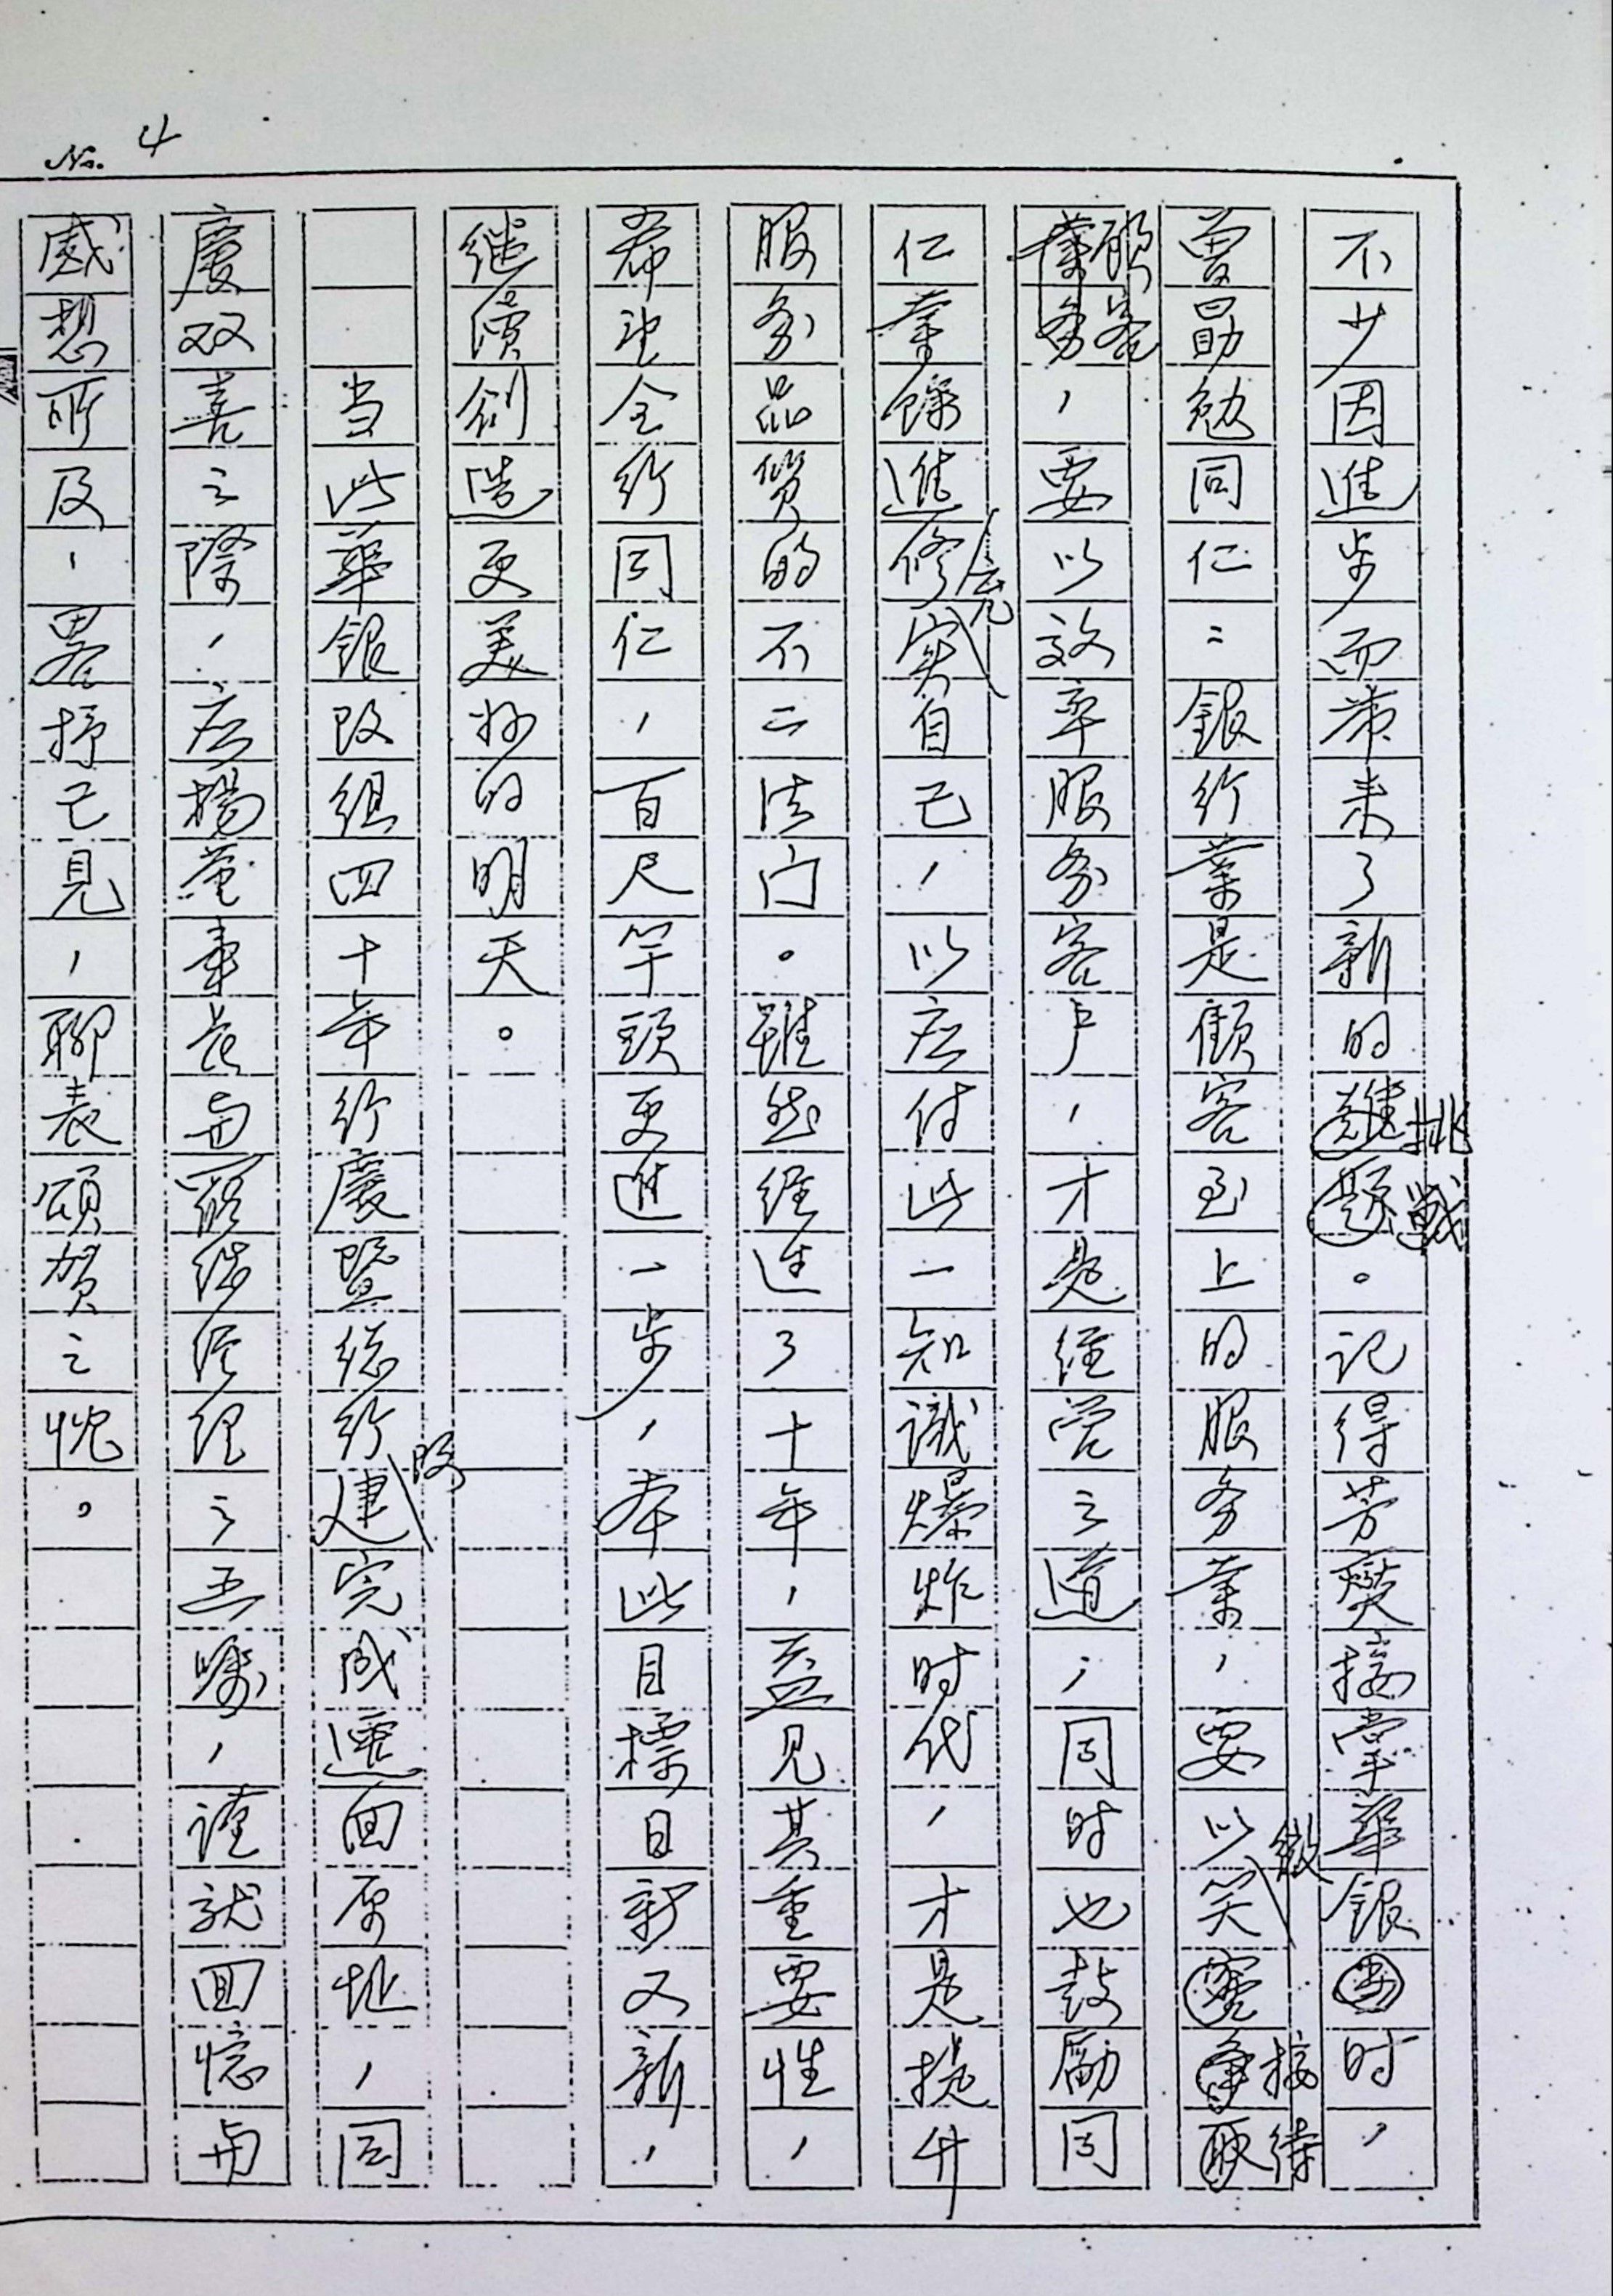 No. 4
不少因進步而带来了新的挑戰。记得芳燮接掌華銀时，
曾勗勉同仁：銀行業是顧客至上的服务業，要以微笑接待
顧客，要以效率服务客户，才是经营之道；同时也鼓勵同
仁業餘進修充实自己，以应付此一知識爆炸时代，才是提升
服务品質的不二法门。雖然经过了十年，益見其重要性，
希望全行同仁，百尺竿頭更進一步，本此目標日新又新，
继续創造更美好的明天。
当此華銀改组四十年行慶暨総行改建完成遷回原址，同
慶双喜之際，应楊董事長与羅総经理之函嘱，謹就回憶与
感想所及，畧抒己見，聊表頌賀之忱。